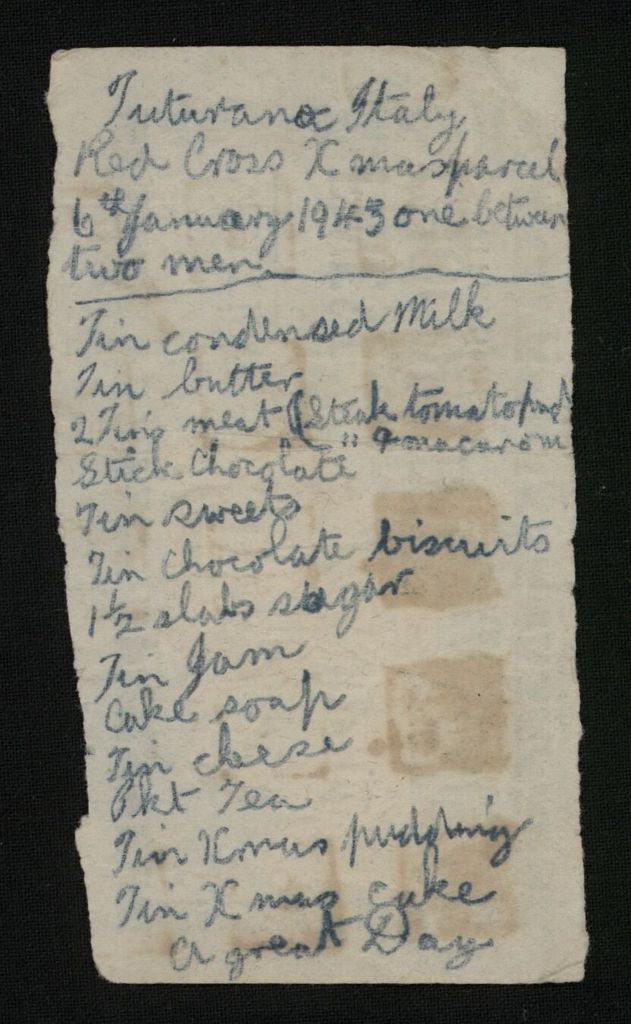 Tuturano Italy
Red Cross Xmas parcel
6th January 1943 one between
two men
Tin condensed Milk
Tin butter
2 Tins meat (Steak tomato pud
" & macaroni
Stick Chocolate
Tin sweets
Tin Chocolate biscuits
1½ slabs sugar
Tin Jam
Cake soap
Tin cheese
Pkt Tea
Tin Xmas pudding
Tin Xmas cake
A great Day